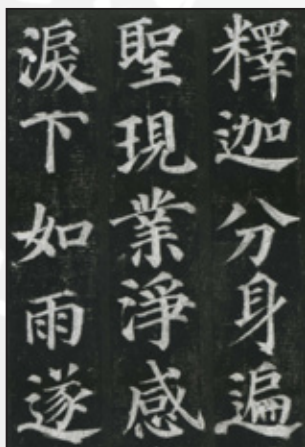 釋迦分身遍
聖現業淨感
淚下如雨遂